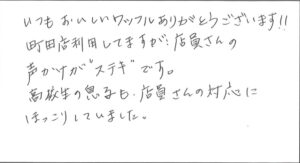 いつもおいしいワッフルありがとうございます!!
町田店利用してますが、店員さんの
声かけが"ステキ"です。
高校生の息子も、店員さんの対応に
ほっこりしていました。